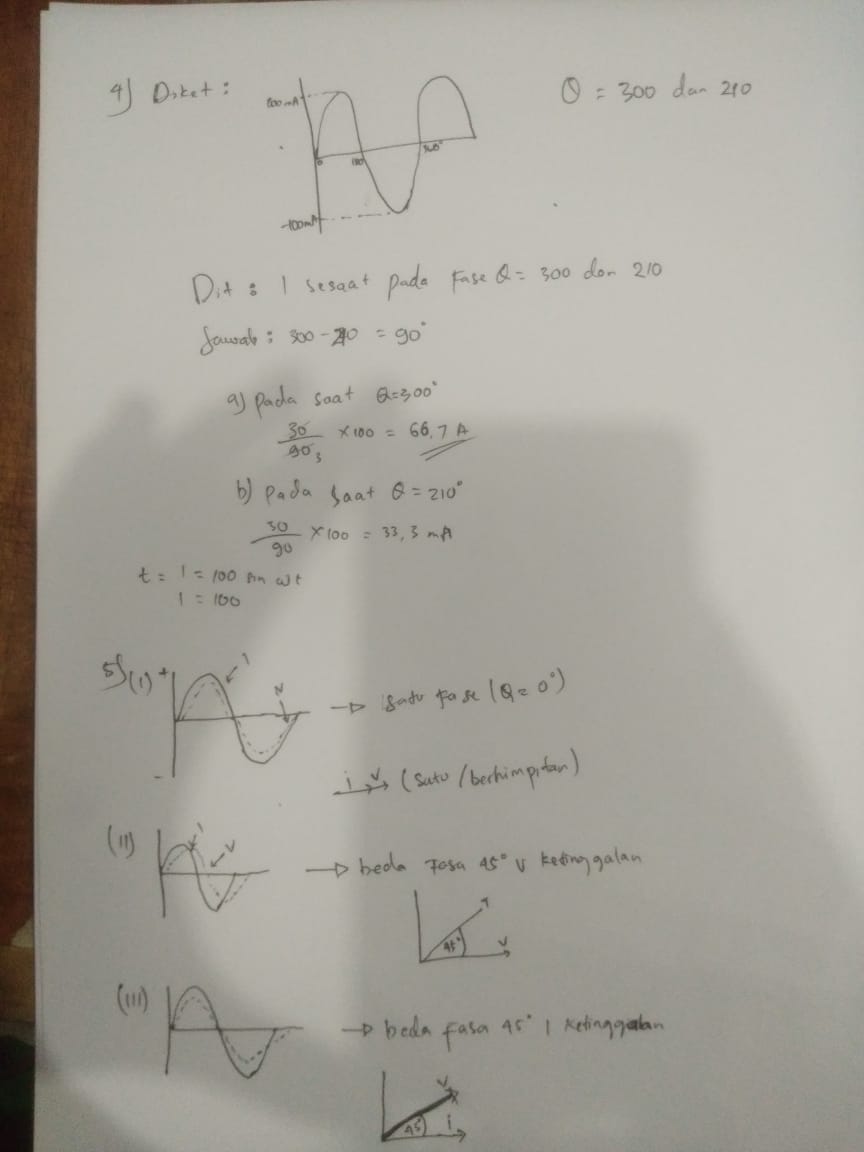 4) Diket :
θ = 300 dan 210
100 mA
0
180
360°
-100mA
Dit : I sesaat pada Fase θ = 300 dan 210
Jawab : 300 - 210 = 90°
a) pada saat θ=300°
30
90 3
x 100 = 66,7 A
b) pada saat θ = 210°
30
90
x 100 = 33,3 mA
t = I = 100 sin ωt
I = 100
5) (I) + I
V
→ satu fase (θ = 0°)
-
i v (satu / berhimpitan)
(II) I V → beda Fasa 45° V ketinggalan
I
45°
V
(III) → beda fasa 45° I ketinggalan
V
45 i